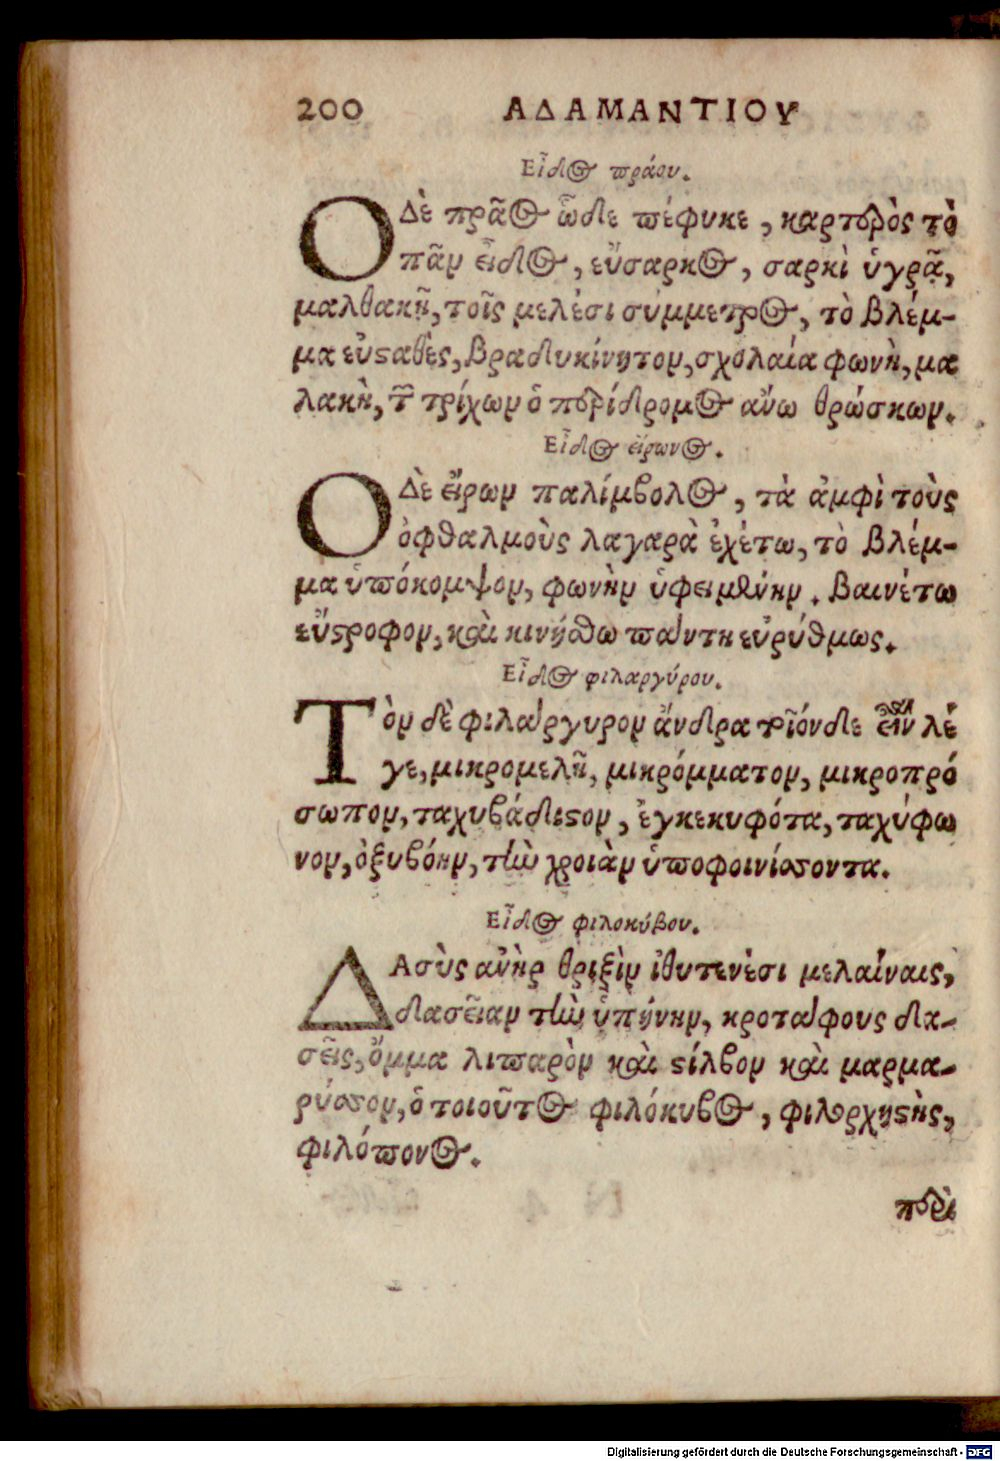 200 ΑΔΑΜΑΝΤΙΟΥ
Εἶδος πράου.
Ο Δὲ πρᾶος ὧδε πέφυκε, καρτερὸς τὸ
πᾶν εἶδος, εὔσαρκος, σαρκὶ ὑγρᾷ,
μαλθακῇ, τοῖς μέλεσι σύμμετρος, τὸ βλέμ-
μα εὐσταθὲς, βραδυκίνητον, σχολαία φωνὴ, μα
λακὴ, τῶν τρίχων ὁ περίδρομος ἄνω θρώσκων.
Εἶδος εἴρωνος.
Ο Δὲ εἴρων παλίμβολος, τὰ ἀμφὶ τοὺς
ὀφθαλμοὺς λαγαρὰ ἐχέτω, τὸ βλέμ-
μα ὑπόκομψον, φωνὴν ὑφειμένην. βαινέτω
εὔστροφον, καὶ κινήσθω πάντη εὐρύθμως.
Εἶδος φιλαργύρου.
Τὸν δὲ φιλάργυρον ἄνδρα τοιόνδε εἶναι λέ
γε, μικρομελῆ, μικρόμματον, μικροπρό
σωπον, ταχυβάδιστον, ἐγκεκυφότα, ταχύφω
νον, ὀξυβόην, τὴν χροιὰν ὑποφοινίσσοντα.
Εἶδος φιλοκύβου.
ΔΑσὺς ἀνὴρ θριξὶν ἰθυτενέσι μελαίναις,
δασεῖαν τὴν ὑπήνην, κροτάφους δα-
σεῖς, ὄμμα λιπαρὸν καὶ στίλβον καὶ μαρμα-
ρύσσον, ὁ τοιοῦτος φιλόκυβος, φιλορχηστὴς,
φιλόπονος.
περὶ
Digitalisierung gefördert durch die Deutsche Forschungsgemeinschaft - DFG